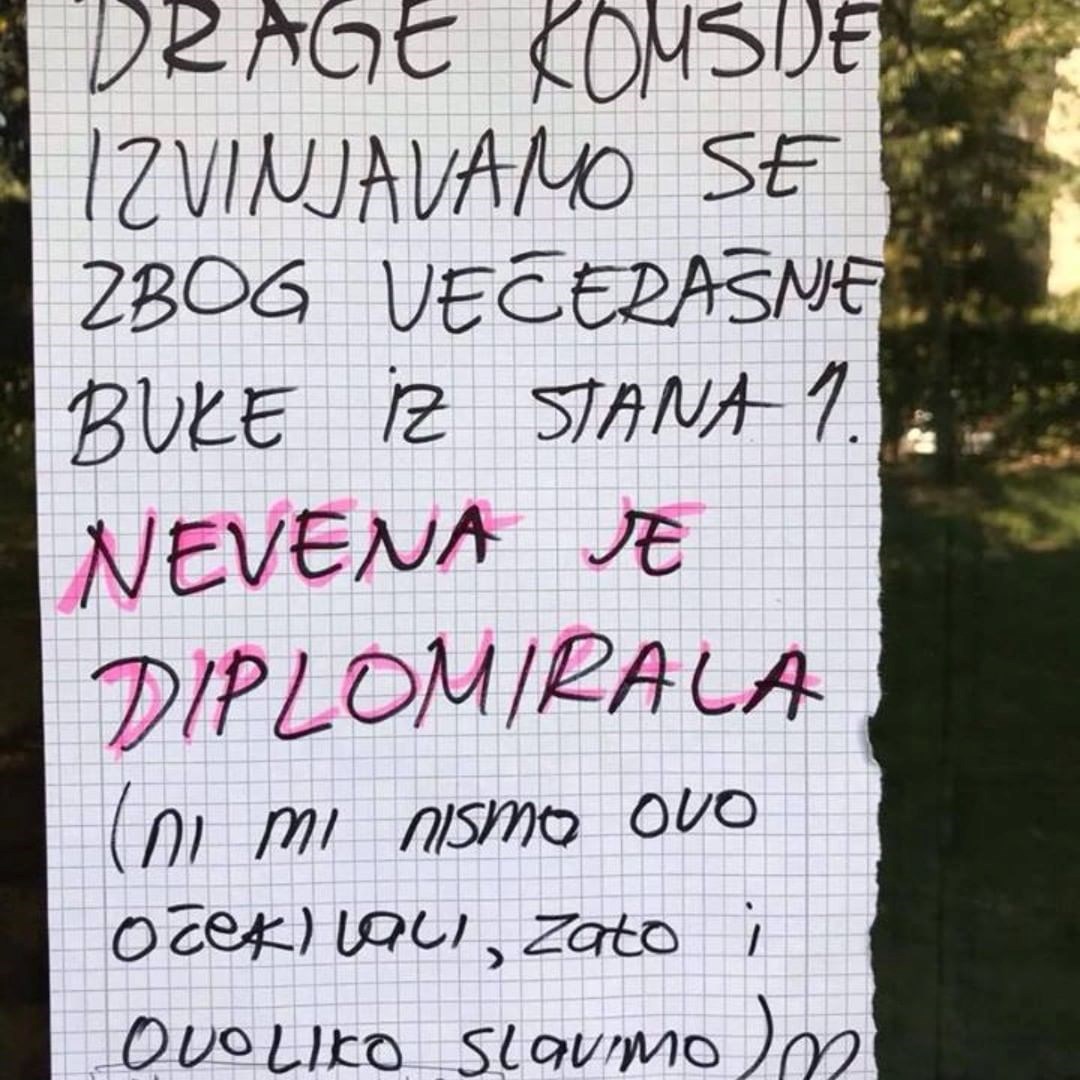 DRAGE KOMŠIJE
IZVINJAVAMO SE
ZBOG VEČERAŠNJE
BUKE IZ STANA 1.
NEVENA JE
DIPLOMIRALA
(ni mi nismo ovo
očekivali, zato i
ovoliko slavimo)♡